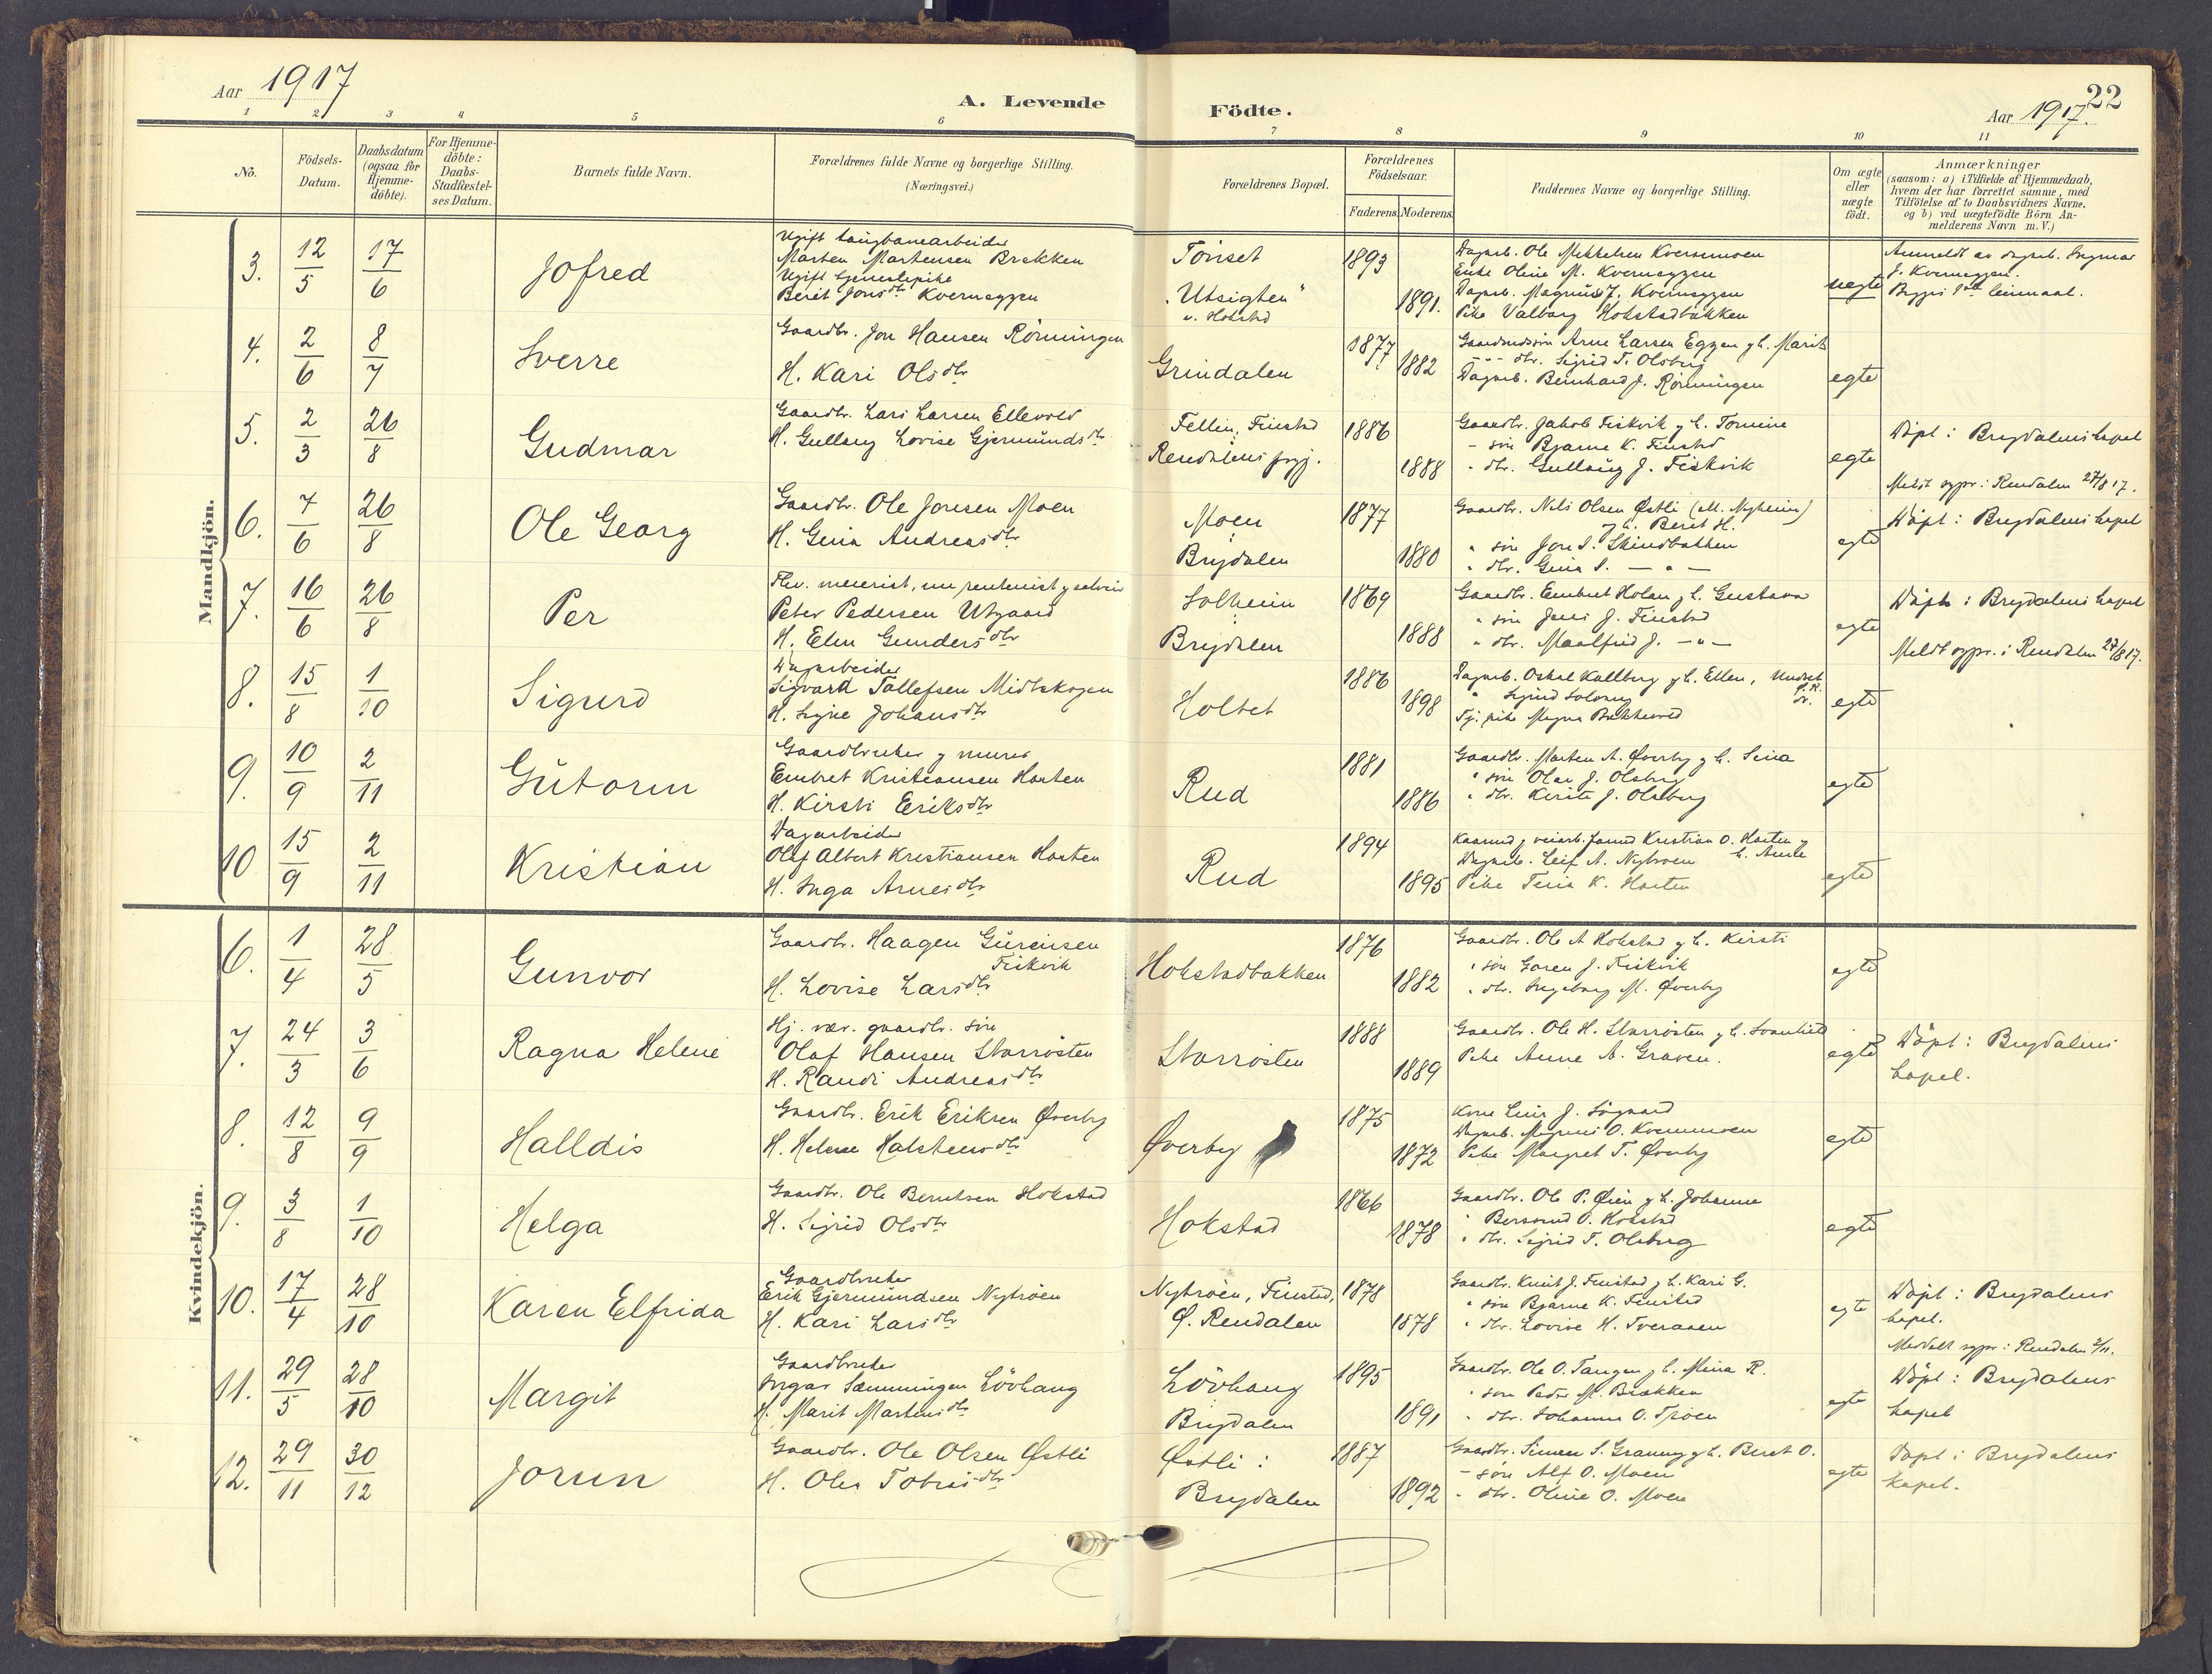 Aar 1917
A. Levende Födte.
Aar 1917.
22
1 2 3 4 5 6 7 8 9 10 11
No.
Födsels-Datum.
Daabsdatum (ogsaa for Hjemme-döbte).
For Hjemme-döbte: Daabs-Stadfæstel-ses Datum.
Barnets fulde Navn.
Forældrenes fulde Navne og borgerlige Stilling.
(Næringsvei.)
Forældrenes Bopæl.
Forældrenes Födselsaar.
Faderens. Moderens.
Faddernes Navne og borgerlige Stilling.
Om ægte eller uægte födt.
Anmærkninger
(saasom: a) i Tilfælde af Hjemmedaab,
hvem der har forrettet samme, med
Tilföielse af to Daabsvidners Navne.
og b) ved uægtefödte Börn An-
melderens Navn m. V.)
Mandkjön.
3. 12/5 17/6 Jofred
Ugift
Marten Martensen Brekken
Ugift
Berit Jonsdtr Kverneggen
Tönset
"Utsigten"
v. Hokstad
1893 1891.
Dagarb. Ole Mikkelsen Kvernmoen
Enke Oline M. Kverneggen
Dagarb. Magnus J. Kverneggen
Pike Valborg Hokstadbakken
uegte
Anmeldt av dagarb. Ingmar
J. Kverneggen.
Begges 1ste leiermaal.
4. 2/6 8/7 Sverre
Gaardbr. Jon Hansen Rönningen
H. Kari Olsdtr
Grindalen
1877 1882
Arne Larsen Eggen g h. Marit
dtr. Sigrid T. Olsberg
Dagarb. Bernhard J. Rönningen
egte
5. 2/3 26/8 Gudmar
Gaardbr. Lars Larsen Ellevold
H. Gullaug Lovise Gjermundsdtr
Fellin, Finstad
Rendalens prgj.
1886 1888
Gaardbr. Jakob Fiskvik g h. Tomine
- sön Bjarne K. Finstad
- dtr. Gullaug J. Fiskvik
egte
Döpt i Brydalens kapel
Meldt sgpr. i Rendalen 27/8 17.
6. 7/6 26/8 Ole Georg
Gaardbr. Ole Jonsen Moen
H. Gina Andreasdtr
Moen
Brydalen
1877 1880
Gaardbr. Nils Olsen Østli
g h. Beret H.
" sön Jon S. Skindbakken
" dtr. Gina S. — " —
egte
Döpt i Brydalens kapel
7. 16/6 26/8 Per
Fhv. meierist, nu rentenist g selveier
Peter Pedersen Utgaard
H. Elen Gundersdtr
Solheim
Brydalen
1869 1888
Gaardbr. Embret Holen g h. Gustava
" sön Jens J. Finstad
" dtr. Maalfrid J. — " —
egte
Döpt i Brydalens kapel
Meldt sgpr. i Rendalen 27/8 17.
8. 15/8 1/10 Sigurd
Dagarbeider
Sigvard Tollefsen Midtskogen
H. Signe Johansdtr
Holtet
1886 1898
Dagarb. Oskar Kallberg g h. Ellen,
" Sigurd
Tj. pike Magna Bakkevold
egte
9. 10/9 2/11 Gutorm
Gaardbruker g murer
Embret Kristiansen Haaten
H. Kirsti Eriksdtr
Rud
1881 1886
Gaardbr. Marten A. Øverby g h. Sina
" sön Olav J. Olsberg
" dtr. Kirsti J. Olsberg
egte
10 15/9 2/11 Kristian
Dagarbeider
Olaf Albert Kristiansen Haaten
H. Inga Arnesdtr
Rud
1894 1895
Kristian O. Haaten g
Dagarb. Leif A. Nybroen h. Anne
Pike Tina K. Haaten
egte
Kvindekjön.
6. 1/4 28/5 Gunvor
Gaardbr. Haagen Gurensen
Fiskvik
H. Lovise Larsdtr
Hokstadbakken
1876 1882
Gaardbr. Ole A Hokstad g h. Kirsti
" sön Goren J. Fiskvik
" dtr. Ingeborg M. Øverby
egte
7. 24/3 3/6 Ragna Helene
Hj. vær. gaardbr. sön
Olaf Hansen Storrösten
H. Randi Andreasdtr
Storrösten
1888 1889
Gaardbr. Ole H. Storrösten g h.
Pike Anne A. Graven.
egte
Döpt i Brydalens
kapel.
8. 12/8 9/9 Halldis
Gaardbr. Erik Eriksen Øverby
H. Helene Halstensdtr
Øverby
1875 1872
Kone Lina J. Sögaard
Dagarb. Magnus O. Kvernmoen
Pike Margret T. Øverby
egte
9. 3/8 1/10 Helga
Gaardbr. Ole Berntsen Hokstad
H. Sigrid Olsdtr
Hokstad
1866 1878
Gaardbr. Ole P. Øien g h. Johanne
" Bersvend O. Hokstad
" dtr. Sigrid T. Olsberg
egte
10. 17/4 28/10 Karen Elfrida
Gaardbruker
Erik Gjermundsen Nybröen
H. Kari Larsdtr
Nybröen, Finstad,
Ø. Rendalen
1878 1878
Gaardbr. Knut J. Finstad g h. Kari G.
" sön Bjarne K. Finstad
" dtr. Lovise H. Tveraaen
egte
Döpt i Brydalens
kapel.
Meddelt sgpr. i Rendalen 2/11.
11. 29/5 28/10 Margit
Gaardbruker
Ingar Sæmmingen Lövhaug
H. Marit Martinsdtr
Lövhaug
Brydalen
1895 1891
Gaardbr. Ole O. Tangen g h. Mina R.
" sön Peder M. Brækken
" dtr. Johanne O. Troen
egte
Döpt i Brydalens
kapel
12. 29/11 30/12 Jorun
Gaardbr. Ole Olsen Østli
H. Olea Tobiasdtr
Østli i
Brydalen
1887 1892
Gaardbr. Simen S. Granmo g h. Beret O.
- sön Alf O. Moen
- dtr. Oline O. Moen
egte
Döpt i Brydalens
kapel.